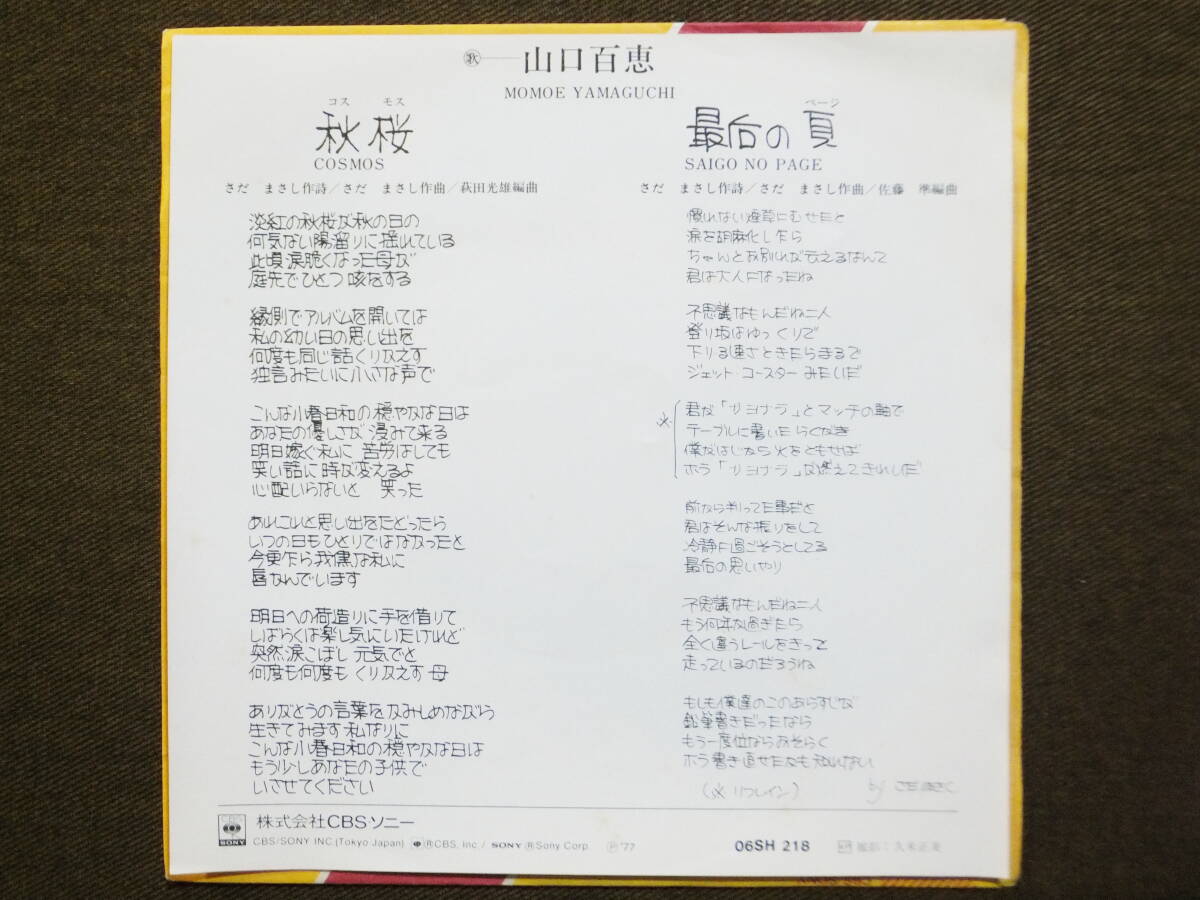 歌――山口百恵
MOMOE YAMAGUCHI
コス モス
秋桜
COSMOS
さだ まさし作詩/さだ まさし作曲/萩田光雄編曲
淡紅の秋桜が秋の日の
何気ない陽溜りに揺れている
此頃涙脆くなった母が
庭先でひとつ咳をする
縁側でアルバムを開いては
私の幼い日の思い出を
何度も同じ話くりかえす
独言みたいに小さな声で
こんな小春日和の穏やかな日は
あなたの優しさが浸みて来る
明日嫁ぐ私に 苦労はしても
笑い話に時が変えるよ
心配いらないと 笑った
あれこれと思い出をたどったら
いつの日もひとりではなかったと
今更乍ら我儘な私に
唇かんでいます
明日への荷造りに手を借りて
しばらくは楽し気にいたけれど
突然涙こぼし 元気でと
何度も何度も くりかえす 母
ありがとうの言葉をかみしめながら
生きてみます 私なりに
こんな小春日和の穏やかな日は
もう少しあなたの子供で
いさせてください
ページ
最后の頁
SAIGO NO PAGE
さだ まさし作詩/さだ まさし作曲/佐藤 準編曲
慣れない煙草にむせたと
涙を胡麻化し乍ら
ちゃんとお別れが云えるなんて
君は大人になったね
不思議なもんだね二人
登り坂はゆっくりで
下りる速さときたらまるで
ジェット・コースターみたいだ
※
君が「サヨナラ」とマッチの軸で
テーブルに書いたらくがき
僕がはじから火をともせば
ホラ「サヨナラ」が燃えてきれいだ
前から判ってた事だと
君はそんな振りをして
冷静に過ごそうとしてる
最后の思いやり
不思議なもんだね二人
もう何年か過ぎたら
全く違うレールをきっと
走っているのだろうね
もしも僕達のこのあらすじが
鉛筆書きだったなら
もう一度位ならおそらく
ホラ書き直せたかも知れない
(※リフレイン) by さだまさし
CBS
SONY
株式会社CBSソニー
CBS/SONY INC.(Tokyo Japan) ®CBS, Inc./SONY ®Sony Corp. ℗'77
06SH 218
撮影:久米正美